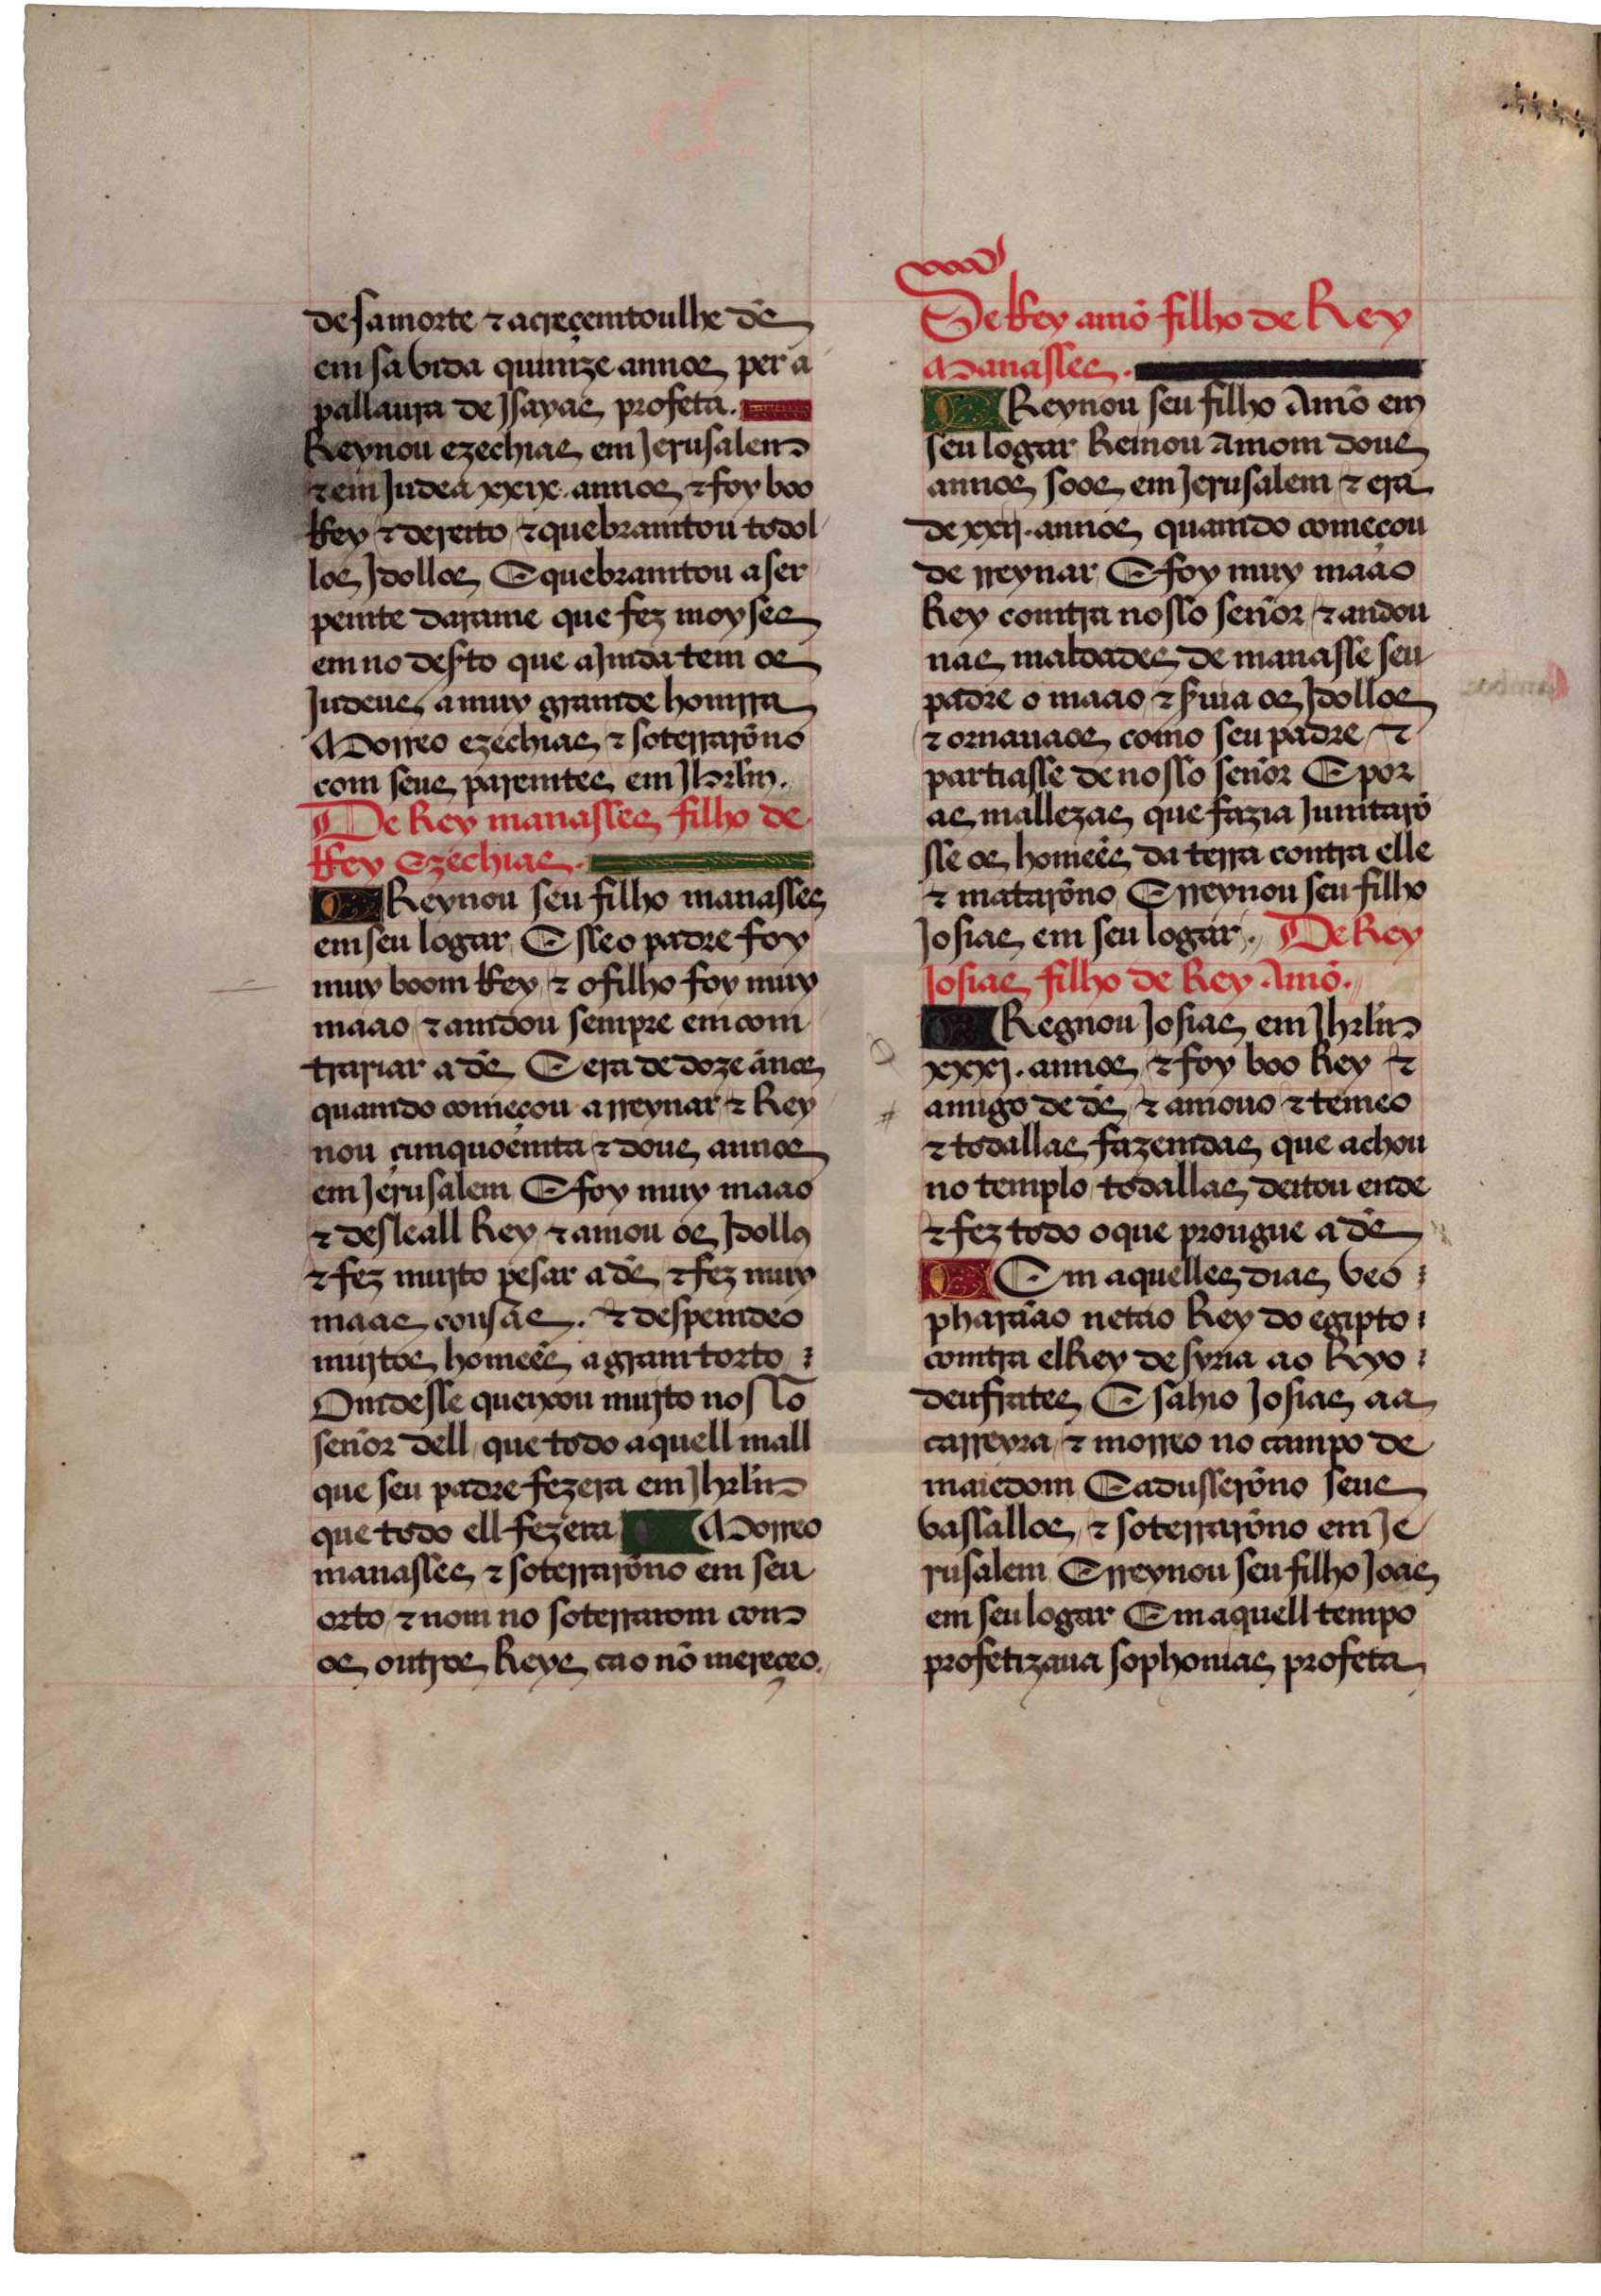 de sa morte ⁊ acreçemtoulhe dẽs
em sa vida quimze annos per a
pallaura de Jsayas profeta.
Reynou ezechias em Jerusalem
⁊ em Judea xxix. annos ⁊ foy boo
Rey ⁊ dereito ⁊ quebramtou todol
los Jdollos E quebramtou a ser
pemte darame que fez moyses
em no desto que aJmda tem os
Judeus a muy gramde homrra
Morreo ezechias ⁊ soterrarõno
com seus paremtes em Jhrlm.
De Rey manasses filho de
Rey Ezechias.
Reynou seu filho manasses
em seu logar E sseo padre foy
muy boom Rey ⁊ o filho foy muy
maao ⁊ amdou sempre em com
trariar a dẽs E era de doze ãnos
quamdo começou a rreynar ⁊ Rey
nou çimquoẽmta ⁊ dous annos
em Jerusalem E foy muy maao
⁊ desleall Rey ⁊ amou os Jdollos
⁊ fez mujto pesar a dẽs ⁊ fez muy
maas cousas. ⁊ despemdeo
mujtos homeẽs a gram torto
Omdesse queixou mujto nosso
señor dell que todo aquell mall
que seu padre fezera em Jhrlm
que todo ell fezera Morreo
manasses ⁊ soterrarõno em seu
orto ⁊ nom no soterrarom com
os outros Reys ca o nõ mereçeo.
De Rey amõ filho de Rey
Manasses.
Reynou seu filho Amõ em
seu logar Reinou Amom dous
annos soos em Jerusalem ⁊ era
de xxij. annos quamdo começou
de rreynar E foy muy maao
Rey comtra nosso señor ⁊ andou
nas maldades de manasse seu
padre o maao ⁊ s̃uia os Jdollos
⁊ ornauaos como seu padre ⁊
partiasse de nosso señor E por
as mallezas que fazia Jumtarõ
sse os homeẽs da terra contra elle
⁊ matarõno E rreynou seu filho
Josias em seu logar. De Rey
Josias filho de Rey Amõ.
Regnou Josias em Jhrlm
xxxj. annos ⁊ foy boo Rey ⁊
amigo de dẽs ⁊ amouo ⁊ temeo
⁊ todallas fazemdas que achou
no templo todallas deitou ende
⁊ fez todo o que prougue a dẽs
Em aquelles dias veo
pharaão netao Rey do egipto
comtra elRey de syria ao Ryo
deufrates E sahio Josias aa
carreyra ⁊ morreo no campo de
maiedom E adusserõno seus
vassallos ⁊ soterrarõno em Je
rusalem E rreynou seu filho Joas
em seu logar Em aquell tempo
profetizaua sophonias profeta